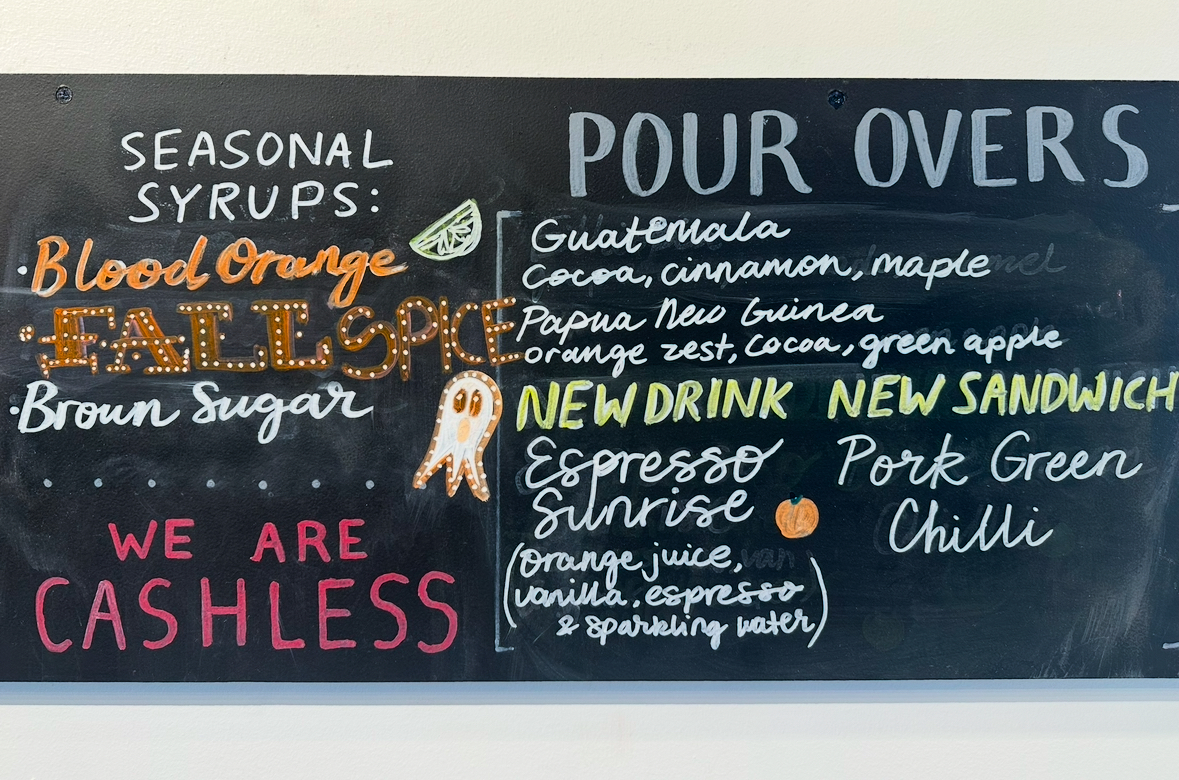 SEASONAL
SYRUPS:
· Blood Orange
· FALL SPICE
· Brown Sugar
. . . . . . .
WE ARE
CASHLESS
POUR OVERS
Guatemala
cocoa, cinnamon, maple
Papua New Guinea
orange zest, cocoa, green apple
NEW DRINK
Espresso
Sunrise
(orange juice,
vanilla, espresso
& sparkling water)
NEW SANDWICH
Pork Green
Chilli